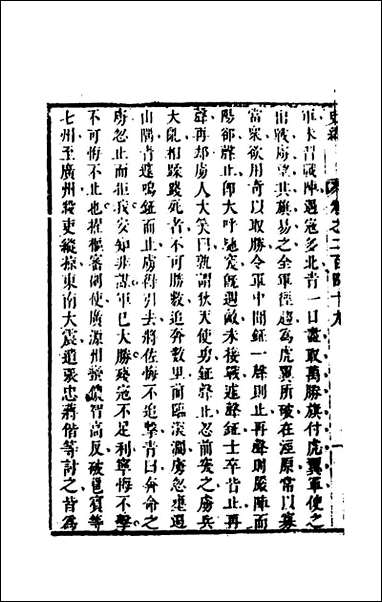 史緯 卷之二百四十九 一
軍未習戰陣遇寇多北青一日盡取萬勝旗付虎翼軍使之
出戰虜望其旗易之全軍徑趨為虎翼所破在涇原常以寡
當衆欲用奇以取勝令軍中聞鉦一聲則止再聲則嚴陣而
陽卻聲止即大呼馳突既遇敵未接戰遽聲鉦士卒皆止再
聲再却虜人大笑曰孰謂狄天使勇鉦聲止忽前突之虜兵
大亂相蹂踐死者不可勝數追奔數里前臨深澗虜忽壅遏
山隅青遽鳴鉦而止虜得引去將佐悔不追擊青曰奔命之
虜忽止而拒我安知非謀軍已大勝殘寇不足利寧悔不擊
不可悔不止也擢樞密副使廣源州蠻儂智高反破邕賓等
七州至廣州殺吏縱掠東南大震遣張忠蔣偕等討之皆為